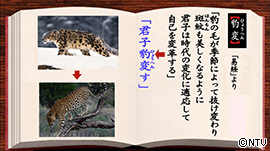 【豹変】
ひょうへん
「易経」より
「豹の毛が季節によって抜け変わり
斑紋も美しくなるように
はんもん
君子は時代の変化に適応して
自己を変革する」
「君子豹変す」
ひょうへん
©NTV